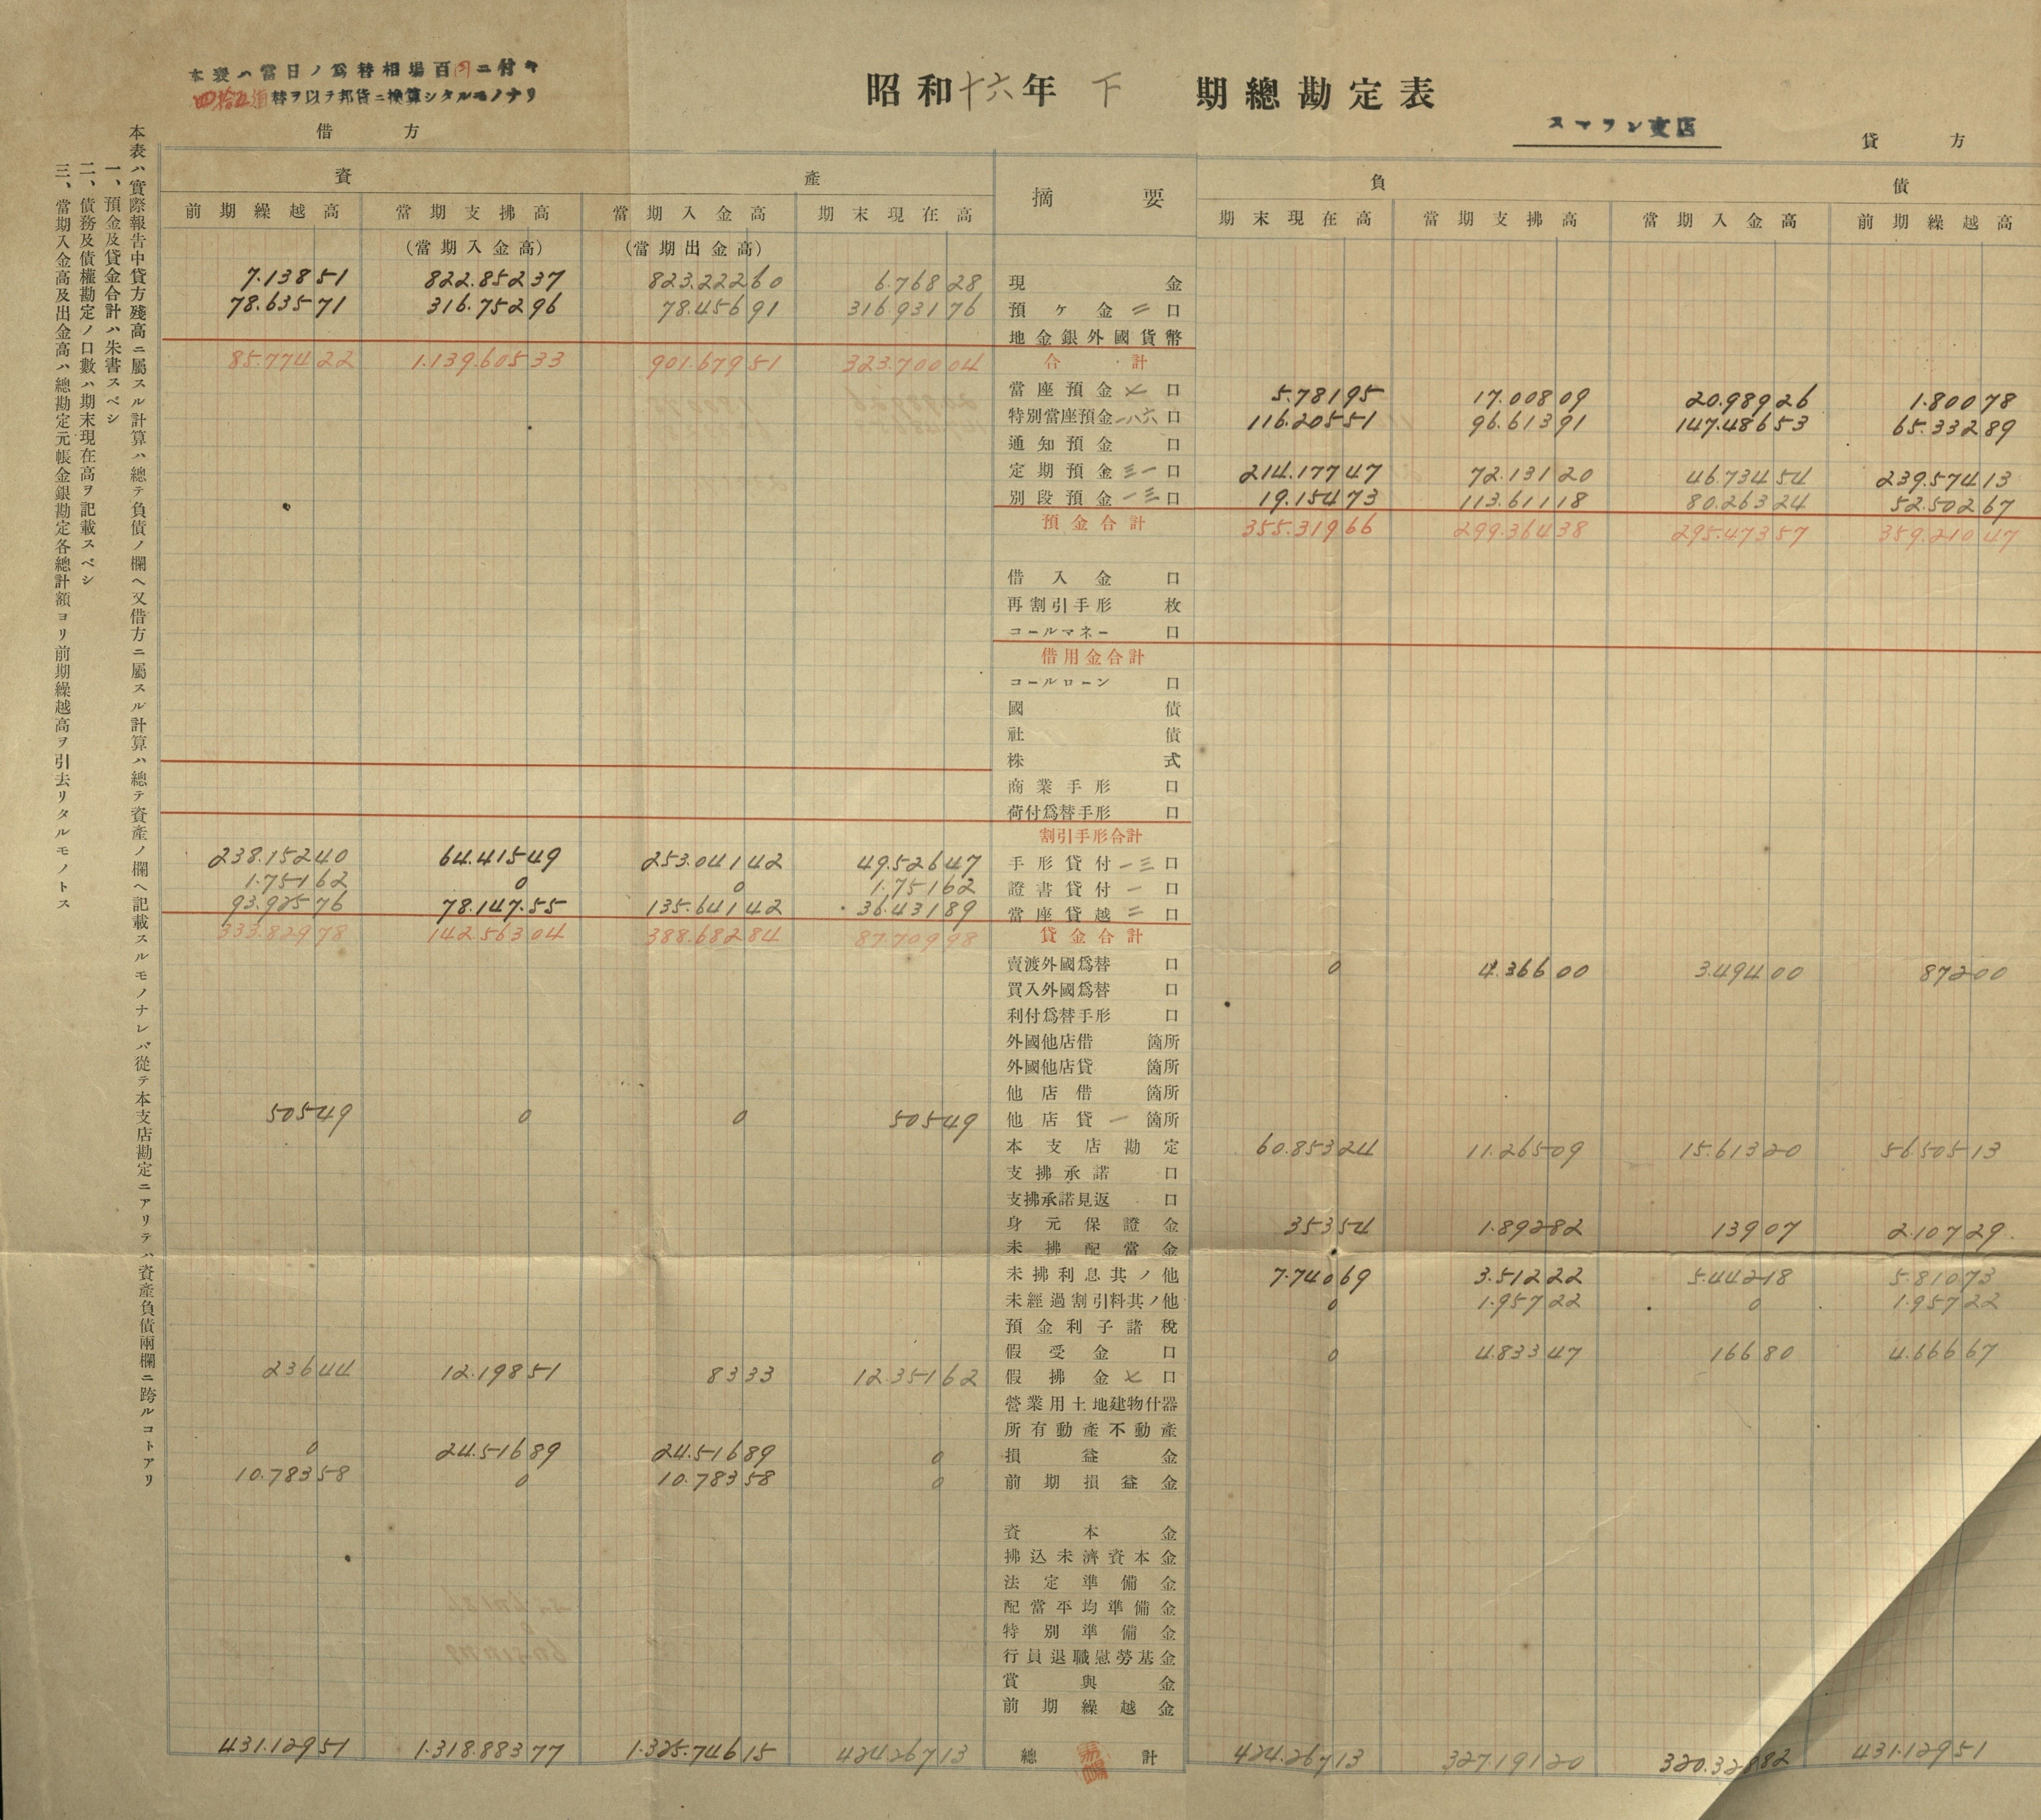 本表ハ當日ノ爲替相場百円ニ付キ
四拾五盾替ヲ以テ邦貨ニ換算シタルモノナリ
昭和十六年 下 期總勘定表
スマラン支店
借方 貸方
本表ハ實際報告中貸方殘高ニ屬スル計算ハ總テ負債ノ欄ヘ又借方ニ屬スル計算ハ總テ資產ノ欄ヘ記載スルモノナレバ從テ本支店勘定ニアリテハ資產負債兩欄ニ跨ルコトアリ
一、預金及貸金合計ハ朱書スベシ
二、債務及債權勘定ノ口數ハ期末現在高ヲ記載スベシ
三、當期入金高及出金高ハ總勘定元帳金銀勘定各總計額ヨリ前期繰越高ヲ引去リタルモノトス
資產 摘要 負債
前期繰越高 當期支拂高 當期入金高 期末現在高 期末現在高 當期支拂高 當期入金高 前期繰越高
(當期入金高) (當期出金高)
7.138 51 822.852 37 823.222 60 6.768 28 現金
78.635 71 316.752 96 78.456 91 316.931 76 預ケ金 二 口
地金銀外國貨幣
85.774 22 1.139.605 33 901.679 51 323.700 04 合計
當座預金 七 口 5.781 95 17.008 09 20.989 26 1.800 78
特別當座預金 一八六 口 116.205 51 96.613 91 147.486 53 65.332 89
通知預金 口
定期預金 三一 口 214.177 47 72.131 20 46.734 54 239.574 13
別段預金 一三 口 19.154 73 113.611 18 80.263 24 52.502 67
預金合計 355.319 66 299.364 38 295.473 57 359.210 47
借入金 口
再割引手形 枚
コールマネー 口
借用金合計
コールローン 口
國債
社債
株式
商業手形 口
荷付爲替手形 口
割引手形合計
238.152 40 64.415 49 253.041 42 49.526 47 手形貸付 一三 口
1.751 62 0 0 1.751 62 證書貸付 一 口
93.925 76 78.147.55 135.641 42 36.431 89 當座貸越 二 口
333.829 78 142.563 04 388.682 84 87.709 98 貸金合計
賣渡外國爲替 口 0 4.366 00 3.494 00 872 00
買入外國爲替 口
利付爲替手形 口
外國他店借 箇所
外國他店貸 箇所
他店借 箇所
505 49 0 0 505 49 他店貸 一 箇所
本支店勘定 60.853 24 11.265 09 15.613 20 56.505 13
支拂承諾 口
支拂承諾見返 口
身元保證金 353 54 1.892 82 139 07 2.107 29
未拂配當金
未拂利息其ノ他 7.740 69 3.512 22 5.442 18 5.810 73
未經過割引料其ノ他 0 1.957 22 0 1.957 22
預金利子諸稅
假受金 口 0 4.833 47 166 80 4.666 67
236 44 12.198 51 83 33 12.351 62 假拂金 七 口
營業用土地建物什器
所有動產不動產
0 24.516 89 24.516 89 0 損益金
10.783 58 0 10.783 58 0 前期損益金
資本金
拂込未濟資本金
法定準備金
配當平均準備金
特別準備金
行員退職慰勞基金
賞與金
前期繰越金
431.129 51 1.318.883 77 1.325.746 15 424.267 13 總計 424.267 13 327.191 20 320.328 82 431.129 51